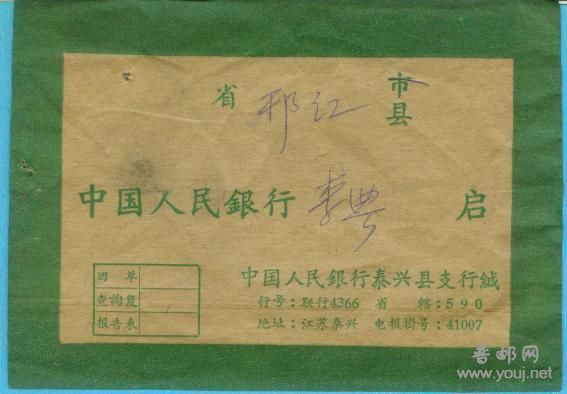 省 邗江 市县
中国人民銀行 李典 启
回单
查詢复
报告表
中国人民銀行泰兴县支行缄
行号：联行4366 省 辖：590
地址：江苏泰兴 电报掛号：41007
晋邮网
www.youj.net